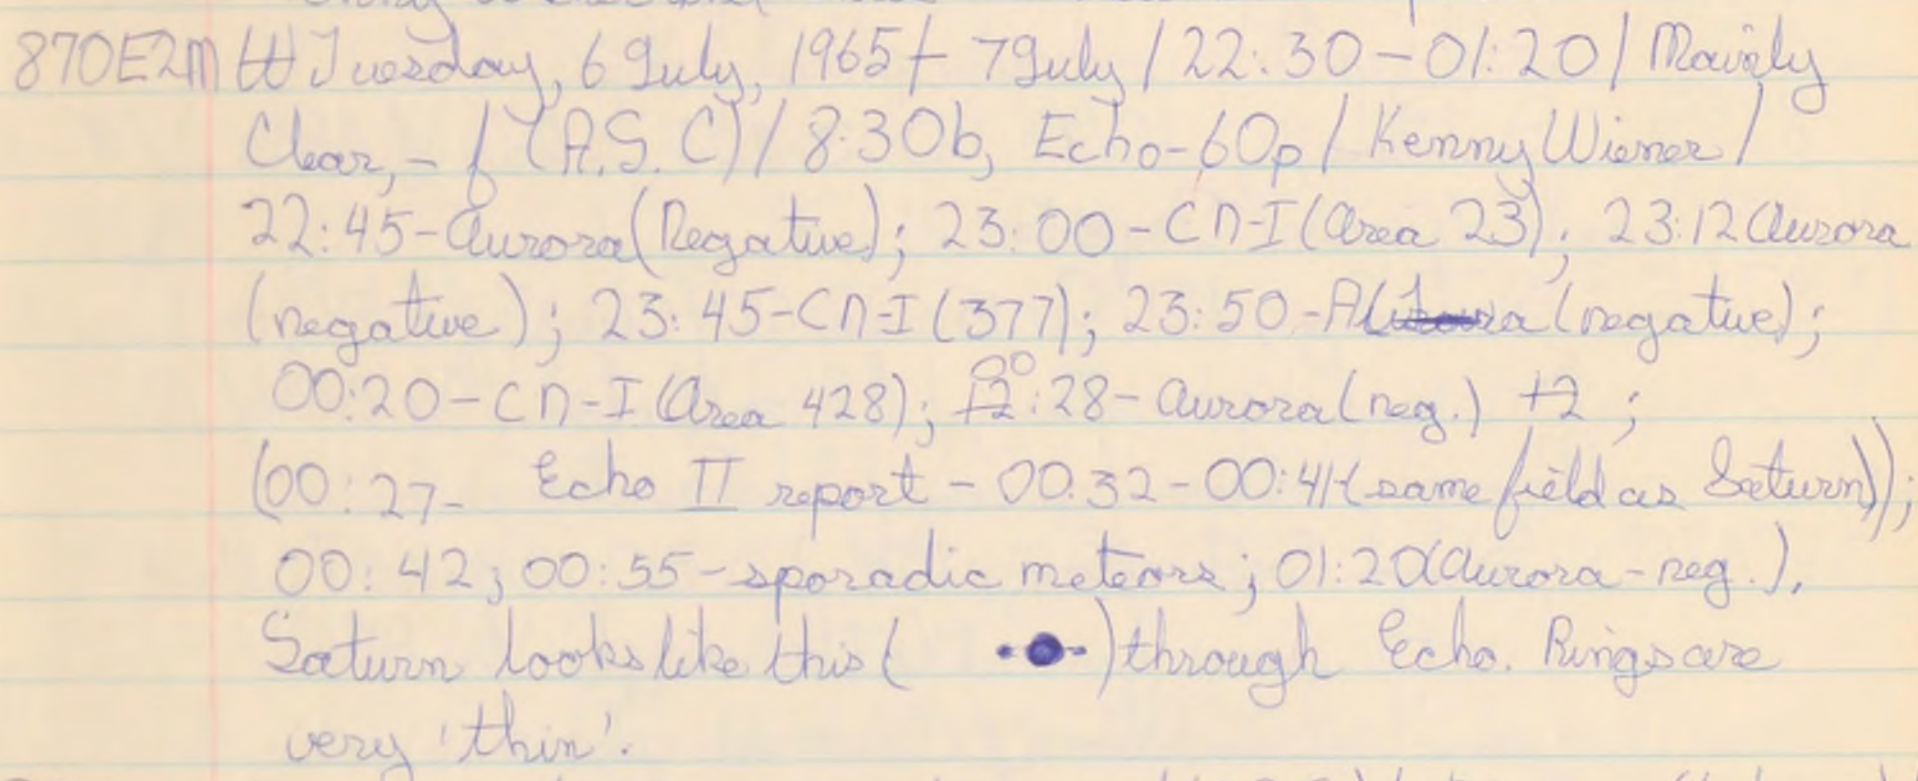 870E2M Tuesday, 6 July, 1965 + 7 July / 22:30 - 01:20 / Mainly
Clear, - f (A.S.C) / 8.30b, Echo-60p / Kenny Wiener /
22:45-Aurora (Negative); 23:00-CN-I (Area 23); 23:12 Aurora
(negative); 23:45-CN-I (377); 23:50-Aurora (negative);
00:20-CN-I (Area 428); 12 00:28- Aurora (neg.) +2;
(00:27- Echo II report - 00:32-00:41-(same field as Saturn));
00:42; 00:55-sporadic meteors; 01:20 (Aurora-neg.),
Saturn looks like this ( ) through Echo. Rings are
very 'thin'.